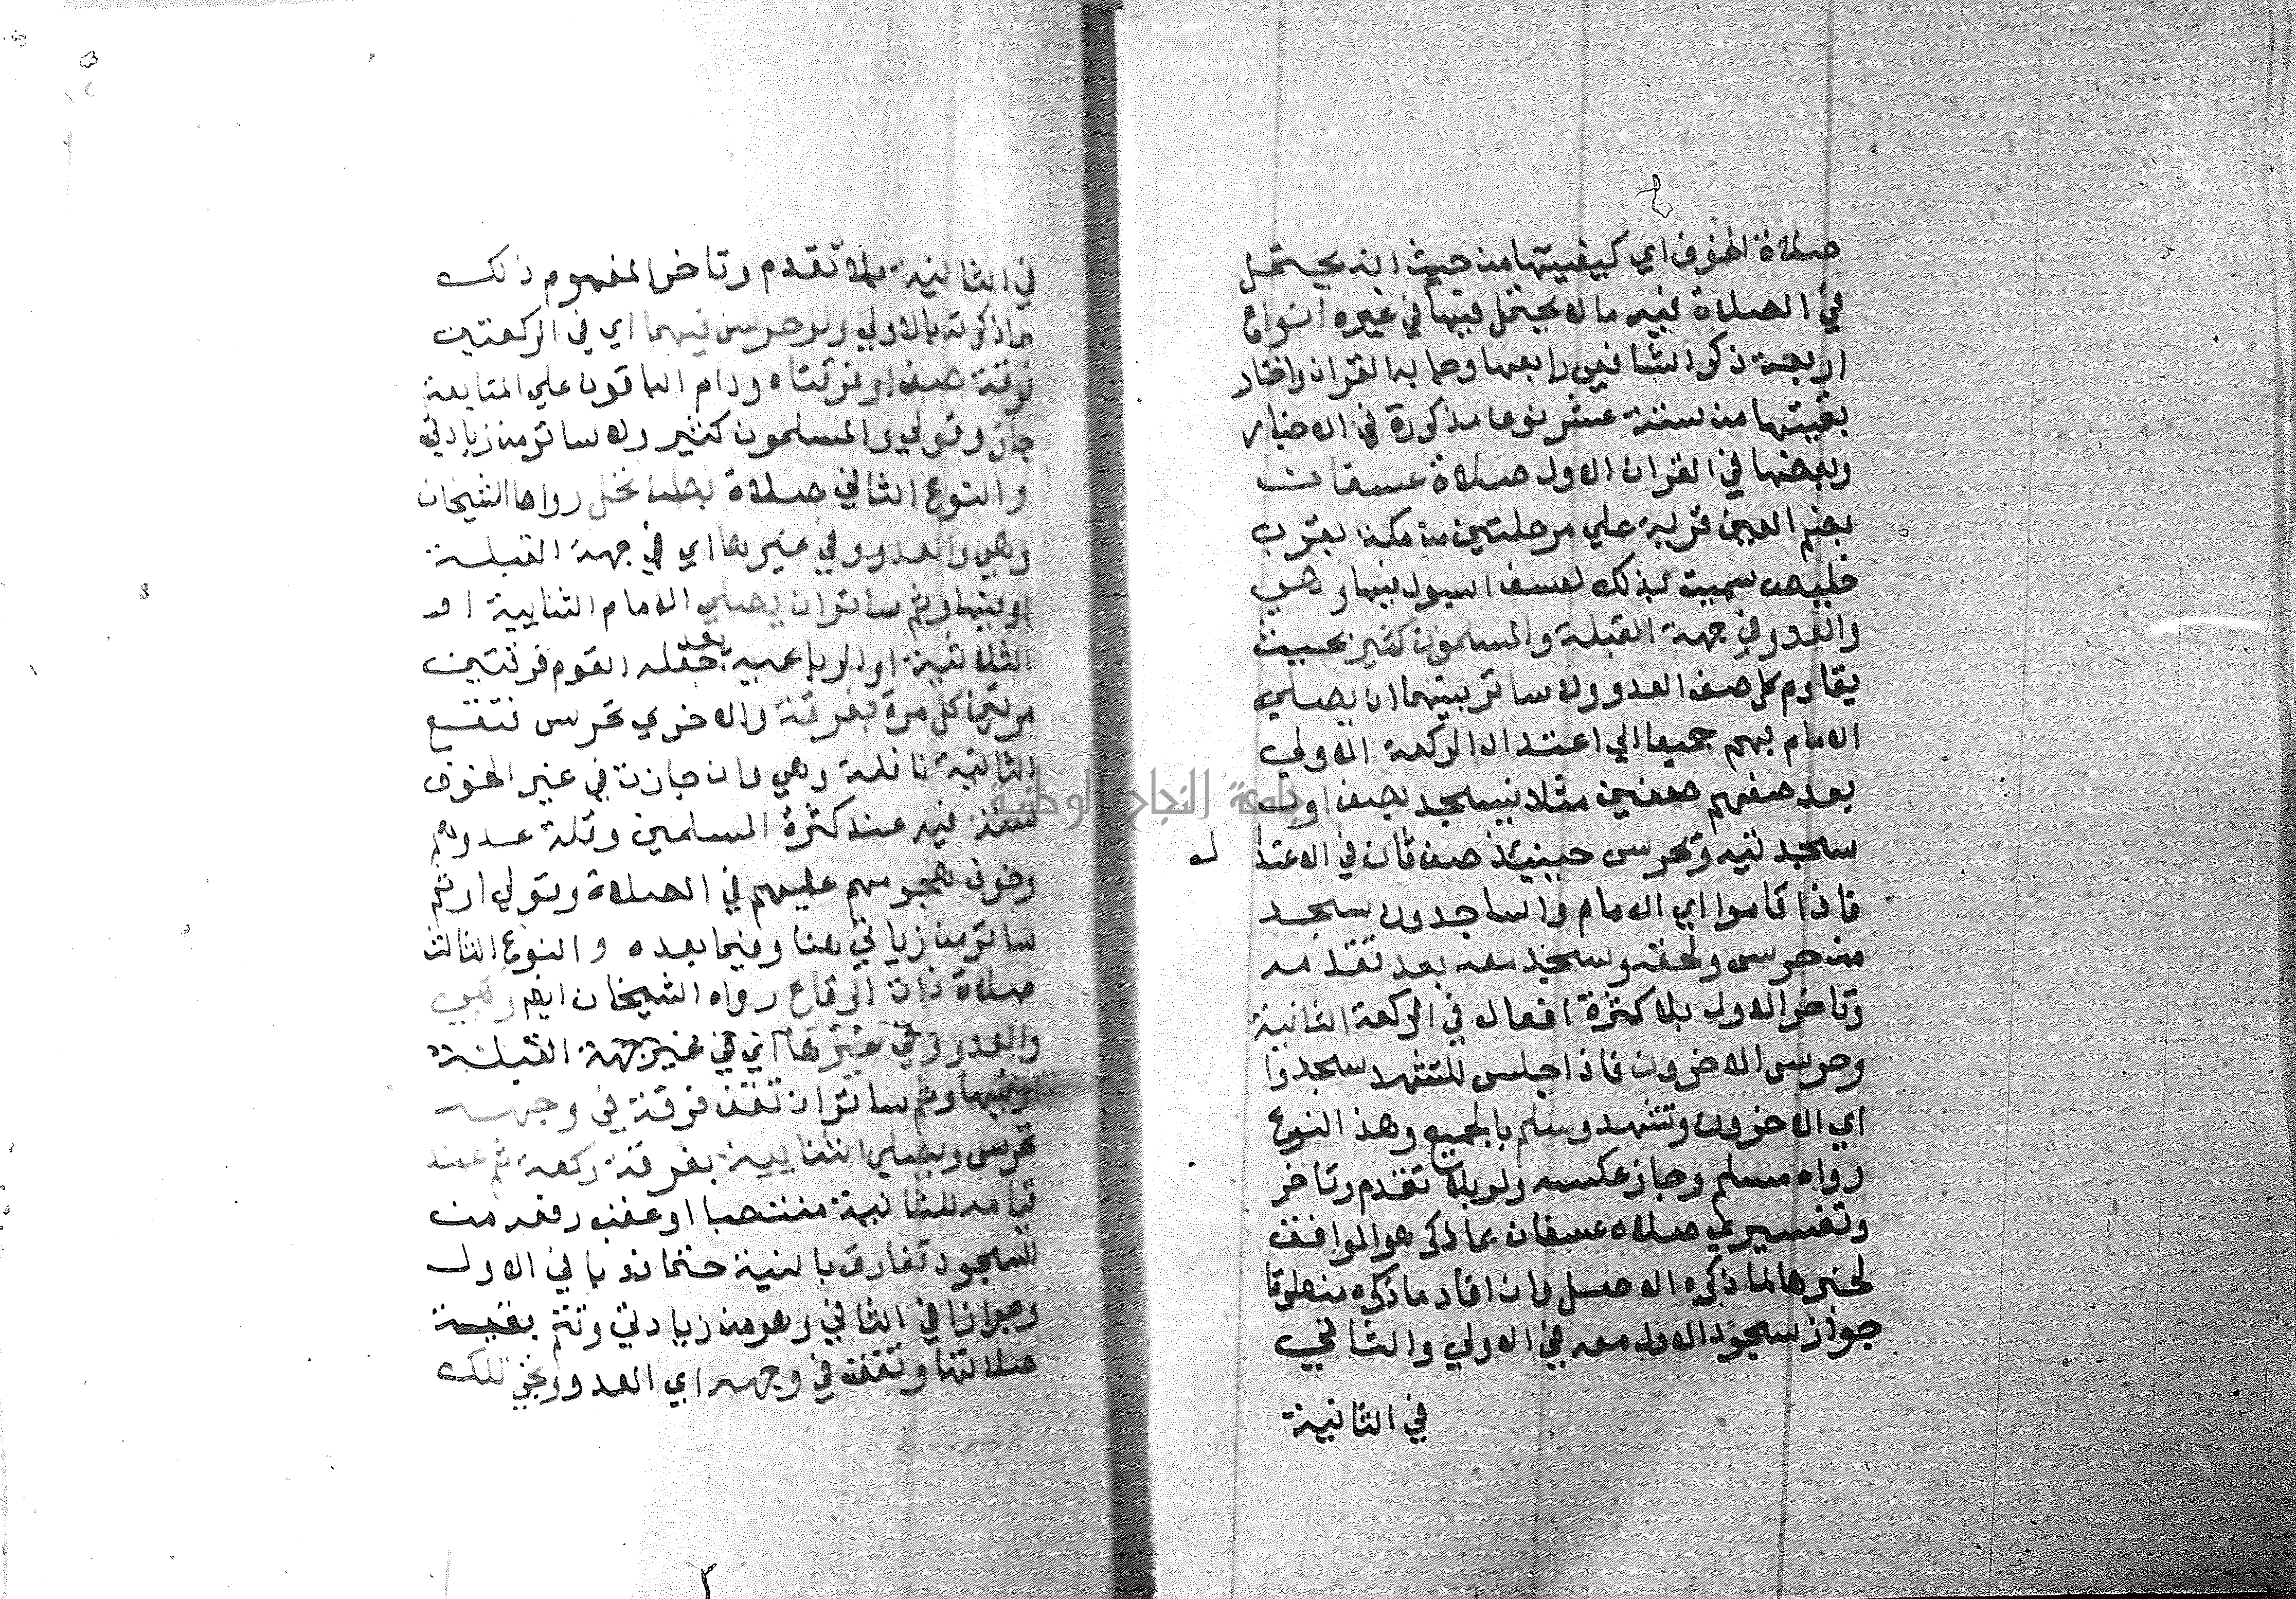 صلاة الخوف اي كيفيتها من حيث انه يحتمل
في الصلاة فيه ما لا يحتمل فيها في غيره انواع
اربعة ذكر الشافعي رابعها وجا به القران واختار
بقيتها من ستة عشر نوعا مذكورة في الاخبار
وبعضها في القران الاول صلاة عسفان
بضم العين قرية علي مرحلتين من مكة بقرب
خليص سميت بذلك لعسف السيول فيها وهي
والعدو في جهة القبلة والمسلمون كثير بحيث
يقاوم كل صف العدو ولا ساتر بينهما ان يصلي
الامام بهم جميعا الي اعتدال الركعة الاولي
بعد صفهم صفين مثلا فيسجد بصف اول
سجدتيه وتحرس حينيذ صف ثان في الاعتدا ل
فاذا قاموا اي الامام والساجدون سجد
من حرس ولحقه وسجد معه بعد تقدمه
وتاخر الاول بلا كثرة افعال في الركعة الثانية
وحرس الاخرون فاذا جلس للتشهد سجدوا
اي الاخرون وتشهد وسلم بالجميع وهذا النوع
رواه مسلم وجاز عكسه ولو بلا تقدم وتاخر
وتفسيري صلاه عسفان بما ذكر هو الموافق
لخبرها لما ذكره الاصل وان افاد ما ذكره منطوقا
جواز سجود الاول معه في الاولي والثاني
في الثانية
في الثانية بلا تقدم وتاخر المفهوم ذلك
مما ذكرته بالاولي ولو حرس فيهما اي في الركعتين
فرقة صف او فرقتاه ودام الباقون علي المتابعة
جاز وقولي والمسلمون كثير ولا ساتر من زيادتي
والنوع الثاني صلاة بطن نخل رواها الشيخان
وهي والعدو في غيرها اي في جهة القبلة
او فيها وثم ساتر ان يصلي الامام الثنايية او
الثلاثية او الرباعية بعد جعله القوم فرقتين
مرتين كل مرة بفرقة والاخري تحرس فتقع
الثانية نافلة وهي وان جازت في غير الخوف
سنت فيه عند كثرة المسلمين وقلة عدوهم
وخوف هجومهم عليهم في الصلاة وقولي او ثم
ساتر من زياتي هنا وفيما بعده والنوع الثالث
صلاة ذات الرقاع رواه الشيخان ايضم وهي
والعدو في غيرها اي في غير جهة القبلة
او فيها وثم ساتر ان تقف فرقة في وجهه
تحرس ويصلي الثنايية بفرقة ركعة ثم عند
قيامه للثانية منتصبا او عقب رفعه من
السجود تفارق بالنية حتما ندبا في الاول
وجوازا في الثاني وهو من زيادتي وتتم بقية
صلاتها وتقف في وجهه اي العدو وتجي تلك
جامعة النجاح الوطنية